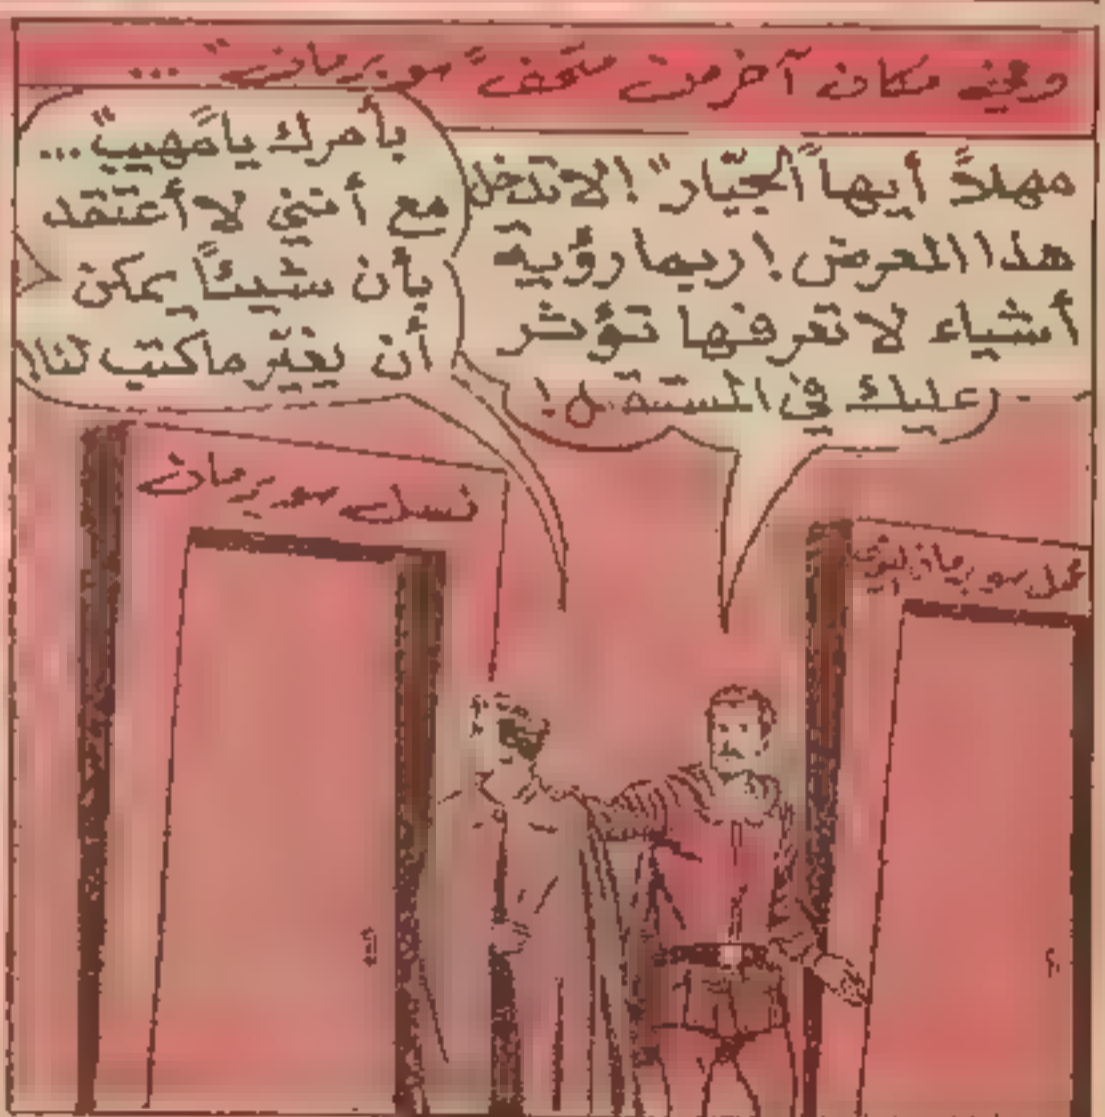 وفي مكان آخر من متحف "سوبرمان" ...
مهلاً أيها "الجبّار"! لا تدخل
هذا المعرض! ربما رؤية
أشياء لا تعرفها تؤثر
عليك في المستقبل!
بأمرك يا "مهيب" ...
مع أنني لا أعتقد
بأن شيئاً يمكن
أن يغيّر ما كتب لنا!
نسل سوبرمان